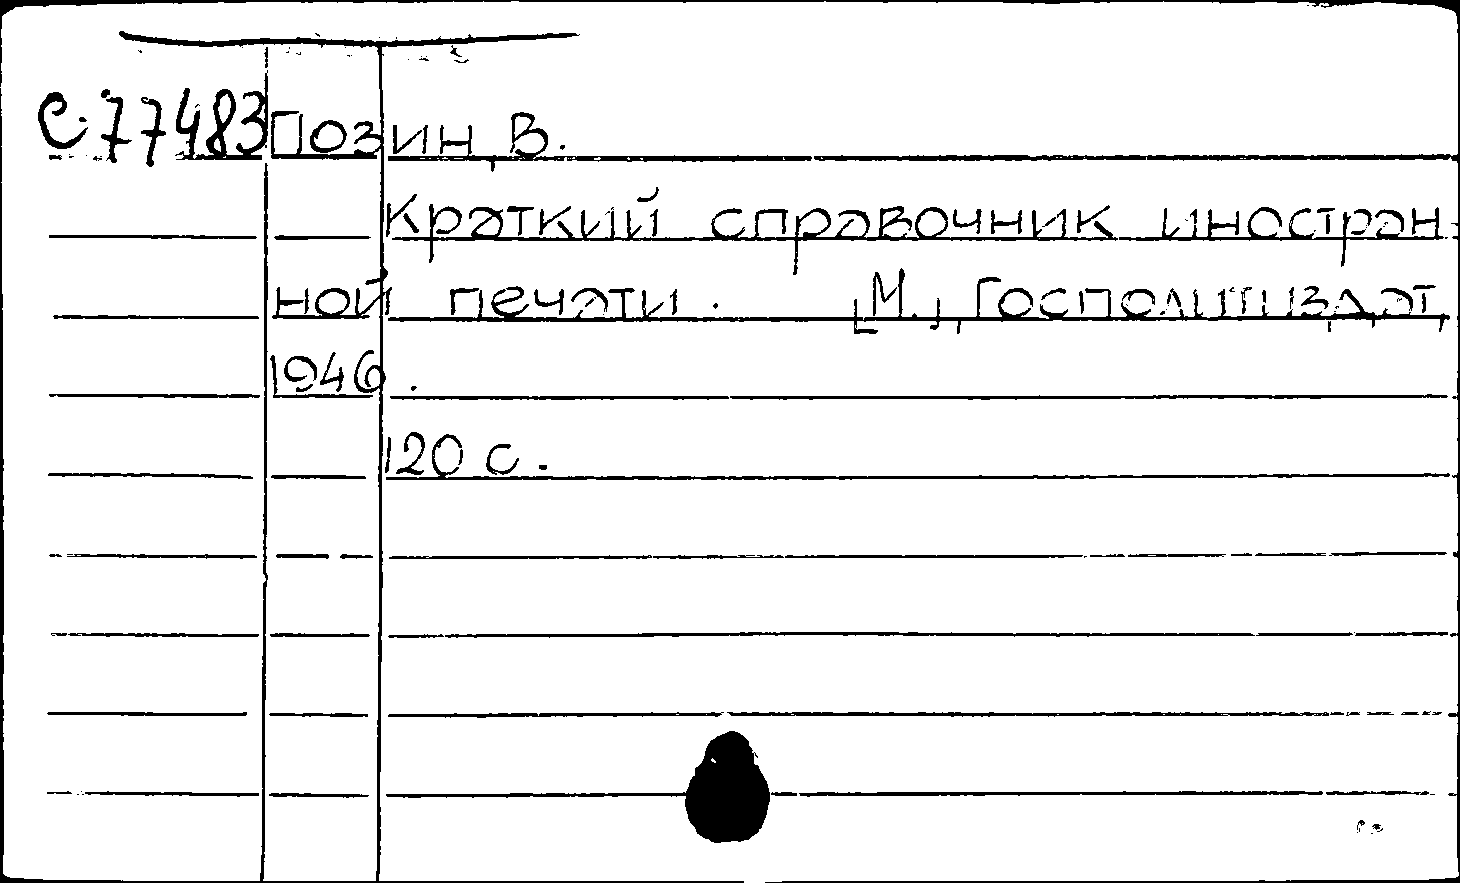 С.77483 Позин, В.
Краткий справочник иностран
ной печати. [М.], Госполитиздат,
1946.
120 с.